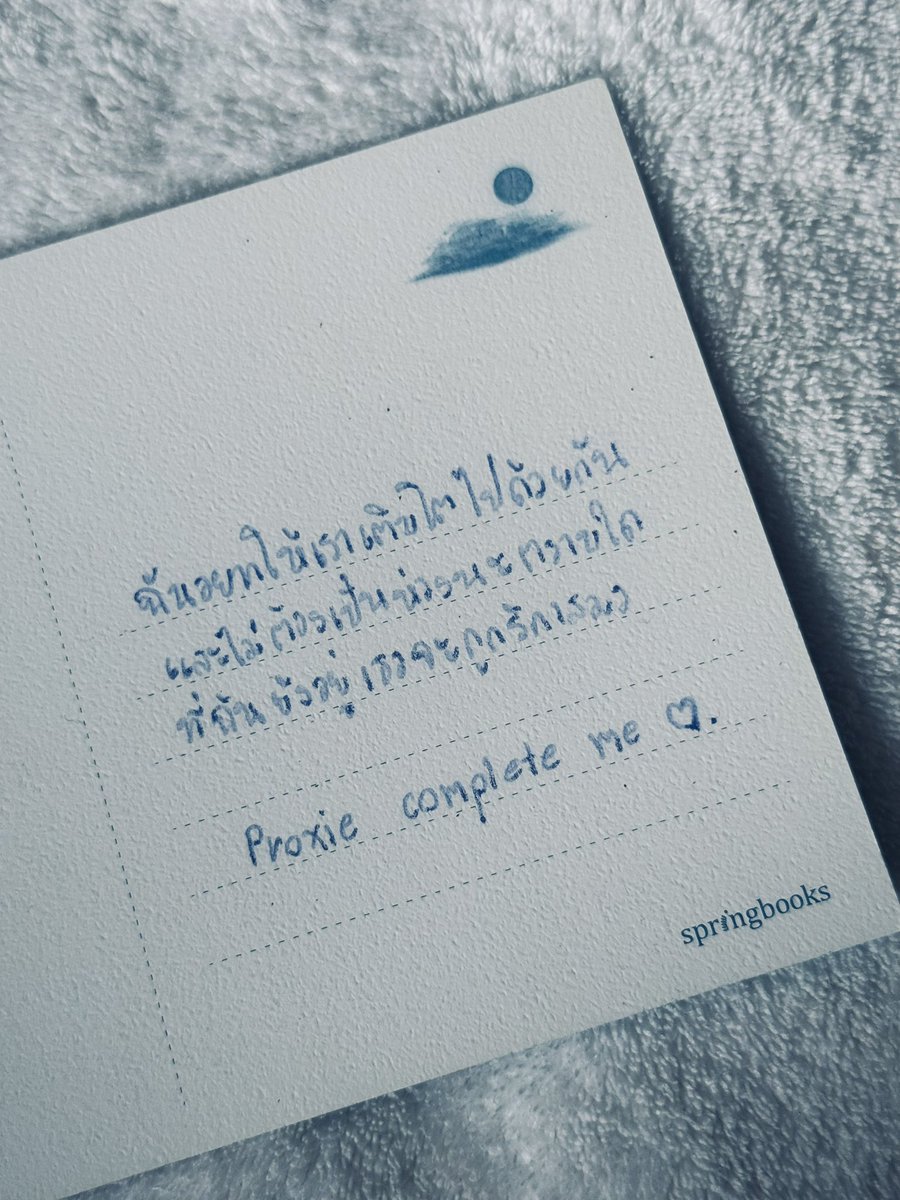 ฉันอยากให้เราเติบโตไปด้วยกัน
และไม่ต้องเป็นห่วงนะตราบใด
ที่ฉันยังอยู่เธอจะถูกรักเสมอ
Proxie complete me ♡.
springbooks